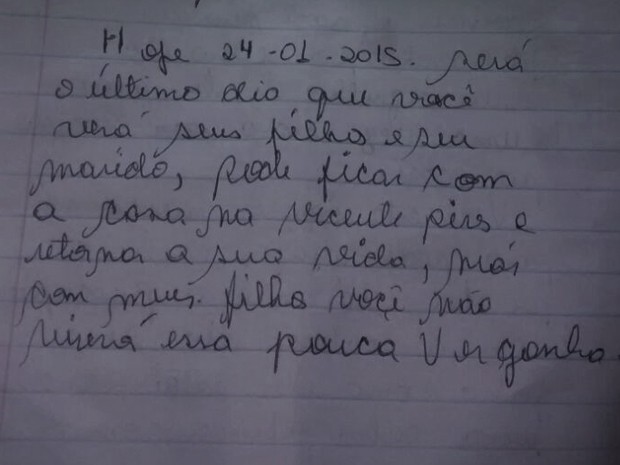 Hoje 24-01-2015. será
o último dia que você
verá seus filho e seu
marido, pode ficar com
a casa na vicente pires e
retorna a sua vida, mas
com meus filho você não
viverá essa pouca Vergonha.